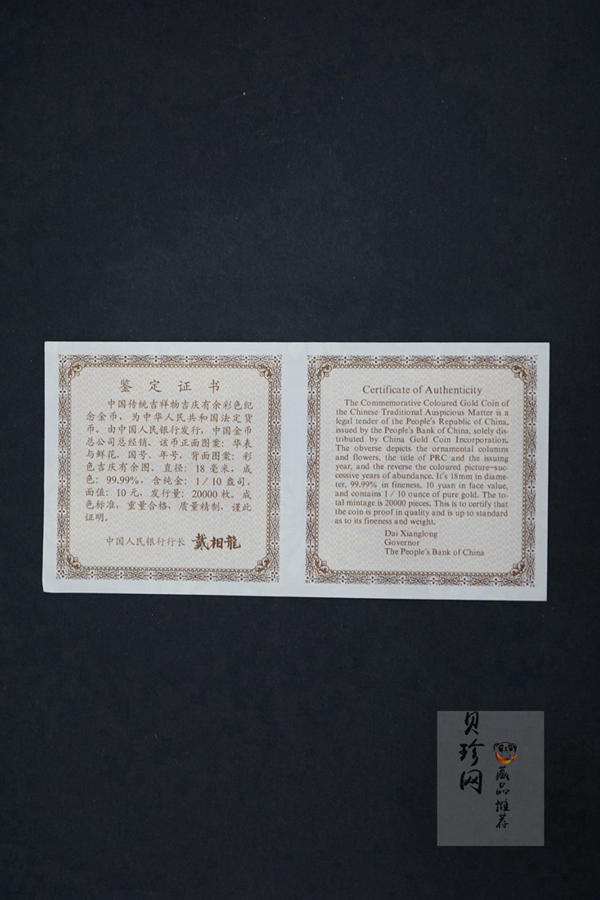 鉴定证书
中国传统吉祥物吉庆有余彩色纪
念金币，为中华人民共和国法定货
币。由中国人民银行发行，中国金币
总公司总经销。该币正面图案：华表
与鲜花、国号、年号，背面图案：彩
色吉庆有余图。直径：18毫米，成
色：99.99%，含纯金：1/10盎司，
面值：10元，发行量：20000枚。成
色标准，重量合格，质量精制，谨此
证明。
中国人民银行行长 戴相龍
Certificate of Authenticity
The Commemorative Coloured Gold Coin of
the Chinese Traditional Auspicious Matter is a
legal tender of the People's Republic of China,
issued by the People's Bank of China, solely dis-
tributed by China Gold Coin Incorporation.
The obverse depicts the ornamental columns
and flowers, the title of PRC and the issuing
year, and the reverse the coloured picture-suc-
cessive years of abundance. It's 18mm in diame-
ter, 99.99% in fineness, 10 yuan in face value,
and contains 1/10 ounce of pure gold. The to-
tal mintage is 20000 pieces. This is to certify that
the coin is proof in quality and is up to standard
as to its fineness and weight.
Dai Xianglong
Governor
The People's Bank of China
贝珍网
藏品推荐